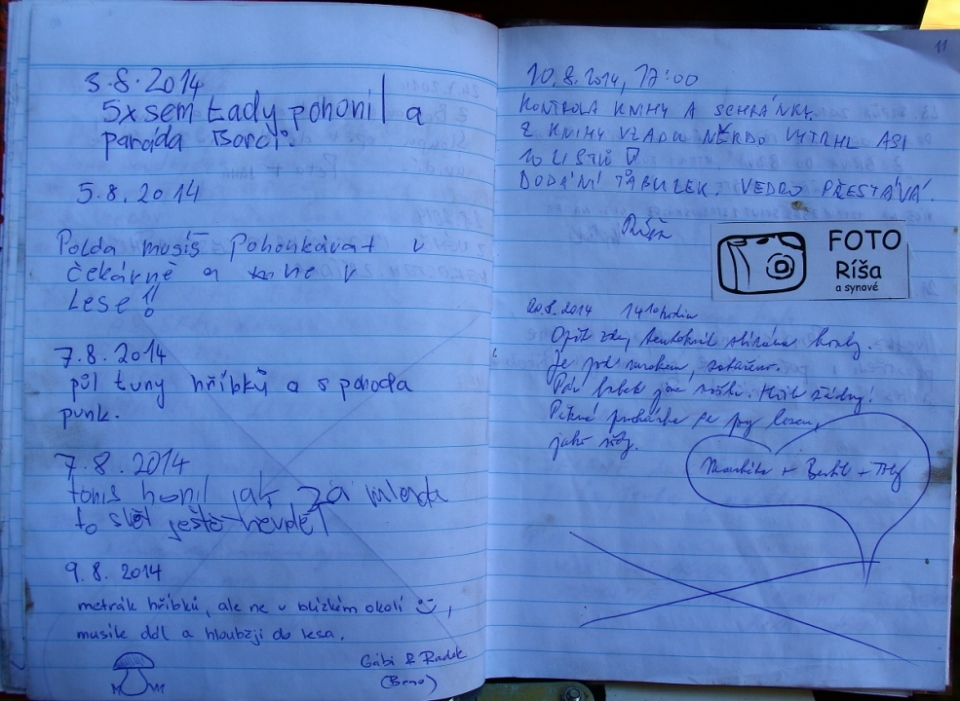 3.8.2014
5x sem tady pohonil a
paráda Borci!
5.8.2014
Polda musíš Pohonkávat v
čekárně a ne v
Lese!!
7.8.2014
půl tuny hříbků a s pohoda
punk.
7.8.2014
honil jak za mlada
to svět ještě nevděl
9.8.2014
metrák hříbků, ale ne v blízkém okolí ,
musíte dál a hloubzji do lesa.
Gábi & Radek
(Brno)
11
10.8.2014, 17:00
KONTROLA KNIHY A SCHRÁNKY.
Z KNIHY VZADU NĚKDO VYTRHL ASI
10 LISTŮ
DODÁNÍ TABULEK. VEDRO PŘESTÁVÁ.
Ríša
FOTO
Ríša
a synové
20.8.2014 14 10 hodin
Opět zde, tentokrát
Je pod mrakem, zataženo.
Pár babek jsme našli. Hřib žádný!
Pěkná procházka je lesem,
jako vždy.
+ +